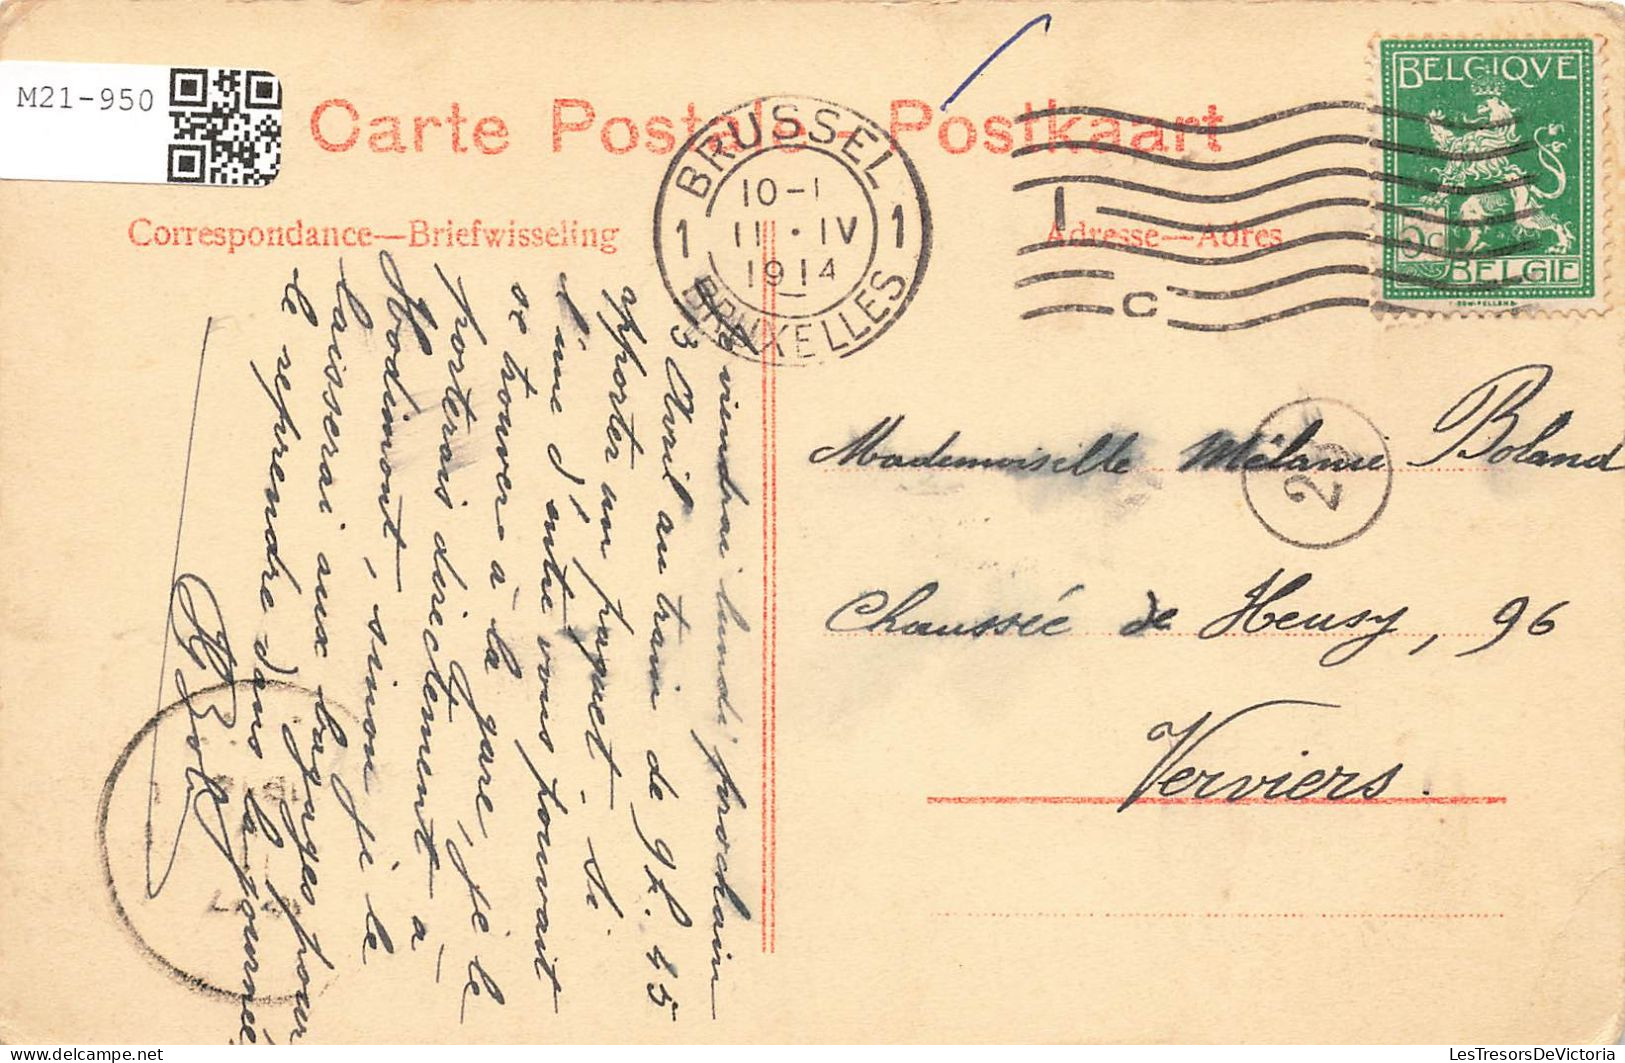 M21-950
Carte Postale - Postkaart
Correspondance—Briefwisseling
Adresse—Adres
BRUSSEL
10-1
11·IV
1914
1 1
BRUXELLES
1
C
BELGIQVE
5c
BELGIE
Je viendrai lundi prochain
13 Avril au train de 9h.45
apporter un paquet. Si
l'une d'entre vous pouvait
se trouver à la gare, je le
porterais directement à
Hodimont, sinon je le
laisserai aux bagages pour
le reprendre dans la journée
Mademoiselle Mélanie Boland
Chaussée de Heusy, 96
Verviers.
Delcampe.net
LesTresorsDeVictoria